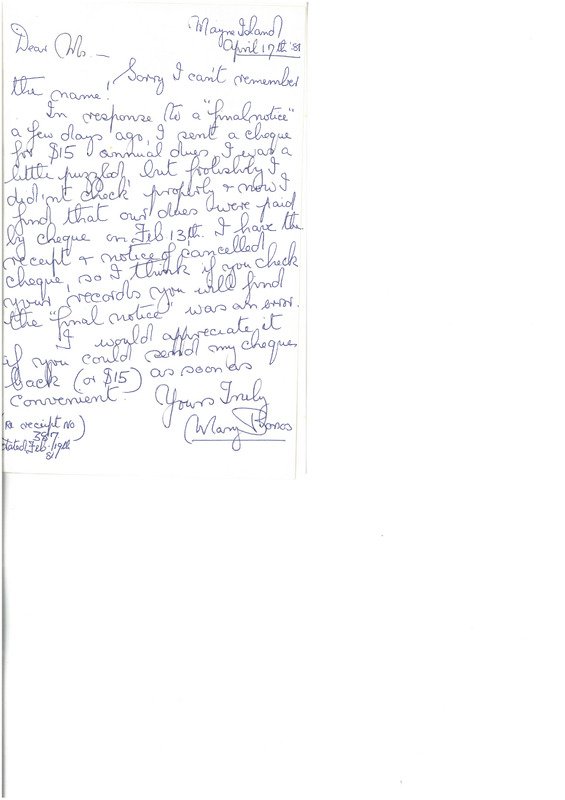 Mayne Island
April 17th '81
Dear Ms. —
Sorry I can't remember
the name!
In response to a "final notice"
a few days ago, I sent a cheque
for $15 annual dues. I was a
little puzzled, but foolishly I
didn't check properly & now I
find that our dues were paid
by cheque on Feb 13th. I have the
receipt & notice of cancelled
cheque, so I think if you check
your records you will find
the "final notice" was an error.
I would appreciate it
if you could send my cheque
back (or $15) as soon as
convenient.
Yours Truly
Mary
(Re receipt No
387
dated Feb. 19th
81)